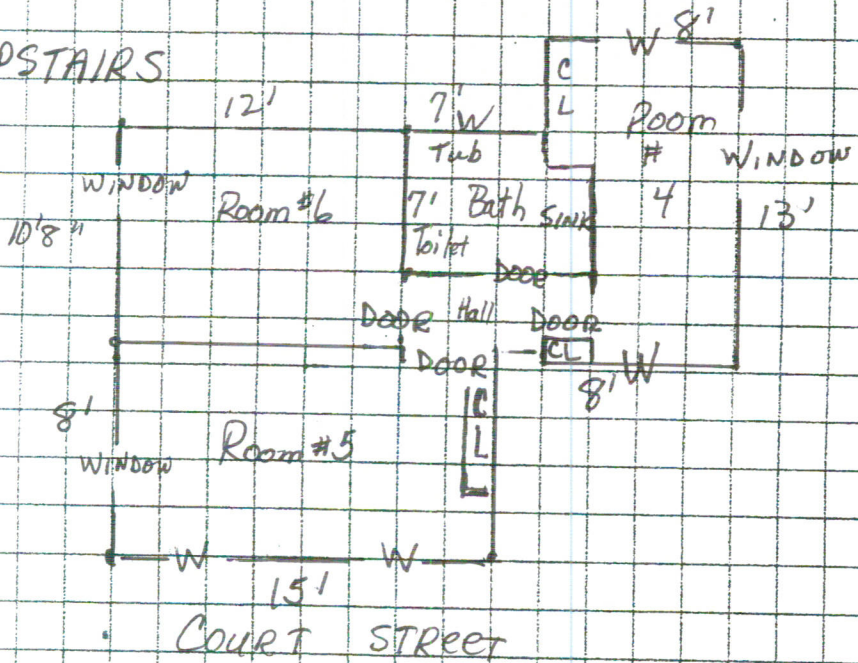 UPSTAIRS
W 8'
C
L
12'
7' W
Tub
Room
#
4
WINDOW
WINDOW
Room #6
7' Bath SINK
13'
10'8"
Toilet
DOOR
DOOR Hall DOOR
DOOR
CL
W
8'
8'
C
L
Room #5
WINDOW
W W
15'
COURT STREET